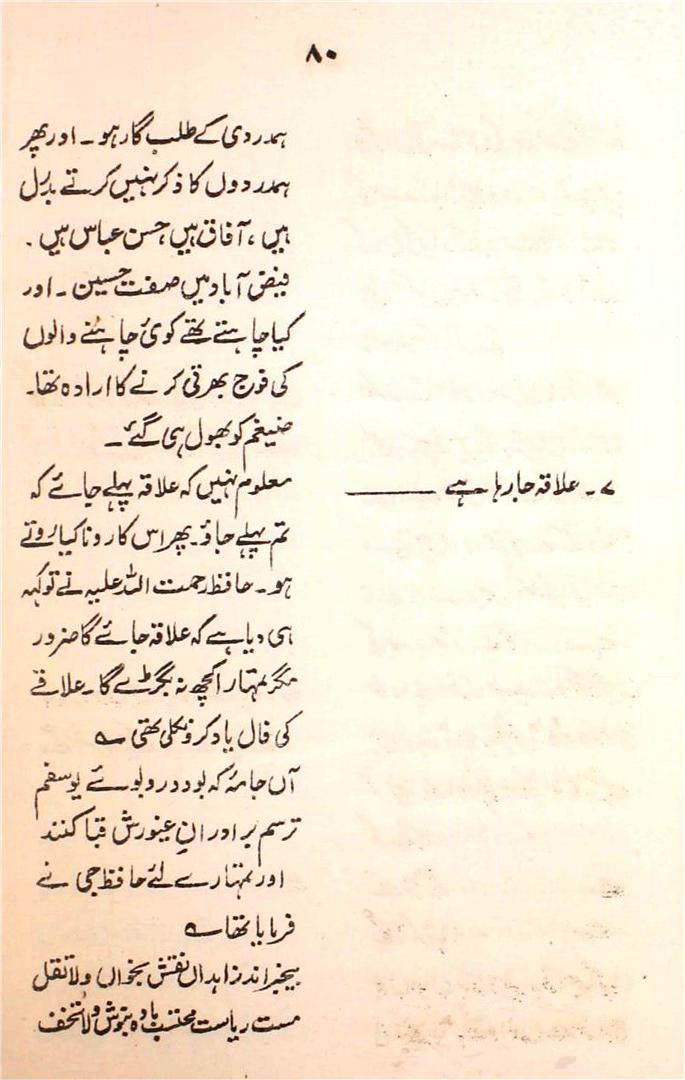 ۸۰
ہمدردی کے طلب گار ہو ۔ اور پھر
ہمدردوں کا ذکر نہیں کرتے بسمل
ہیں ، آفاق ہیں حسن عباس ہیں ۔
فیض آباد میں صفت حسین ۔ اور
کیا چاہتے تھے کوئی چاہنے والوں
کی فوج بھرتی کرنے کا ارادہ تھا ۔
ضیغم کو بھول ہی گئے ۔
۷ ۔ علاقہ جا رہا ہے ــــــــ معلوم نہیں کہ علاقہ پہلے جائے کہ
تم پہلے جاؤ ۔ پھر اس کا رونا کیا روتے
ہو ۔ حافظ رحمت اللہ علیہ نے تو کہہ
ہی دیا ہے کہ علاقہ جائے گا ضرور
مگر تمہارا کچھ نہ بگڑے گا ۔ علاقے
کی فال یاد کرو نکلی تھی ؎
آں جامۂ کہ بود درو بوئے یوسفم
ترسم برادرانِ غیورش قبا کنند
اور تمہارے لئے حافظ جی نے
فرمایا تھا ؎
بیخبر اندز اہداں نقش بخواں ولا تقل
مست ریاست محتسب بادہ بنوش ولا تخف